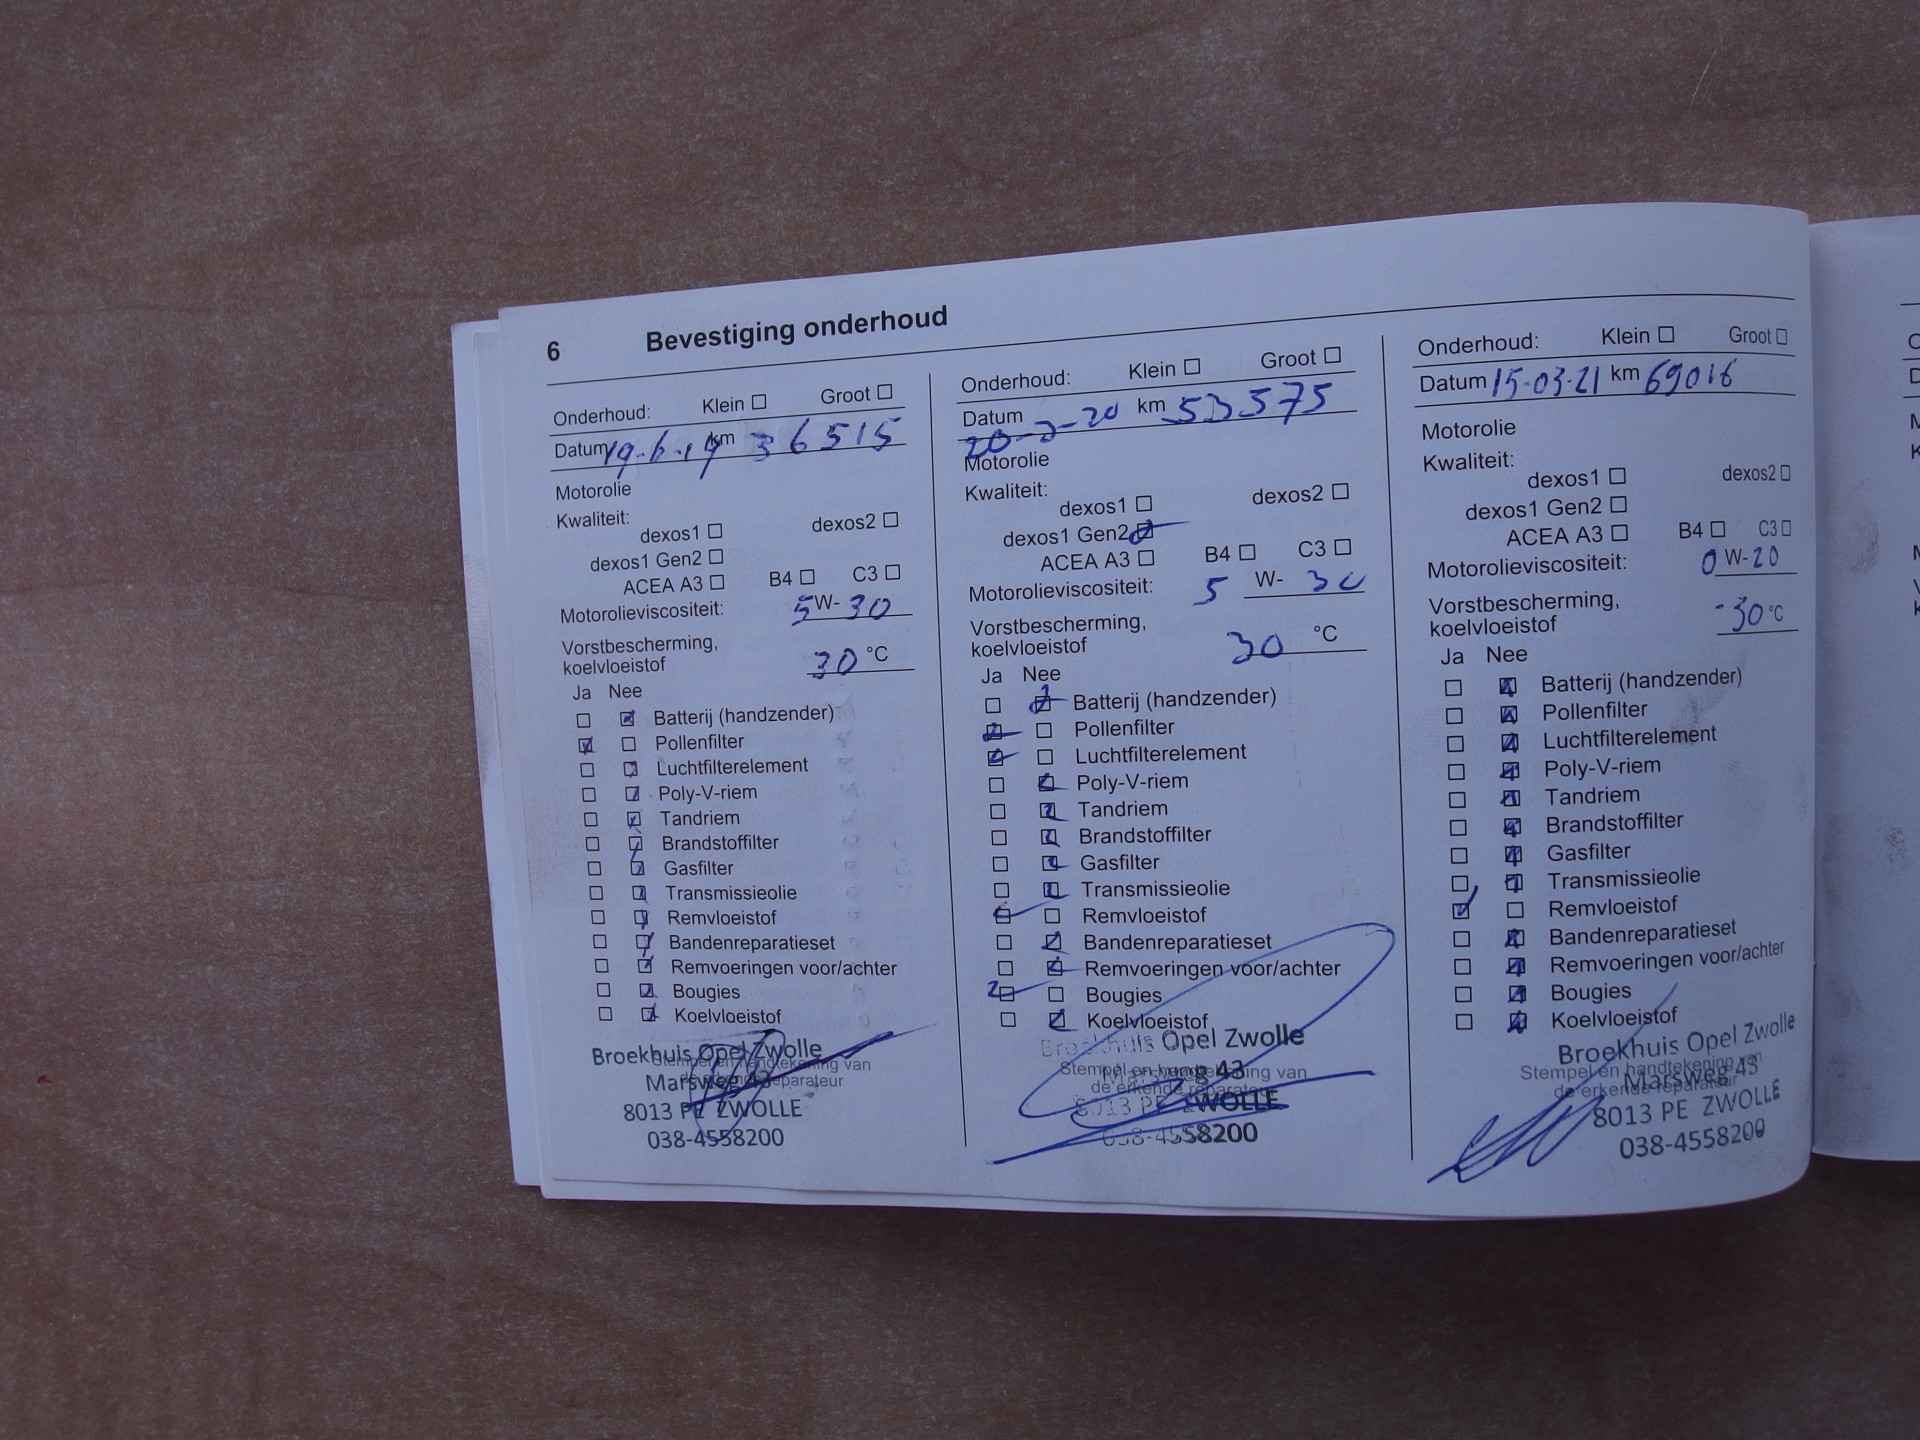 6 Bevestiging onderhoud
Onderhoud: Klein Groot
Datum 19-6-19 km 36515
Motorolie
Kwaliteit:
dexos1 dexos2
dexos1 Gen2
ACEA A3 B4 C3
Motorolieviscositeit: 5 W- 30
Vorstbescherming,
koelvloeistof 30 °C
Ja Nee
Batterij (handzender)
Pollenfilter
Luchtfilterelement
Poly-V-riem
Tandriem
Brandstoffilter
Gasfilter
Transmissieolie
Remvloeistof
Bandenreparatieset
Remvoeringen voor/achter
Bougies
Koelvloeistof
Broekhuis Opel Zwolle
Stempel en handtekening van
Marsweg 43
de erkende reparateur
8013 PE ZWOLLE
038-4558200
Onderhoud: Klein Groot
Datum km 53575
20-2-20
Motorolie
Kwaliteit:
dexos1 dexos2
dexos1 Gen2
ACEA A3 B4 C3
Motorolieviscositeit: 5 W- 30
Vorstbescherming,
koelvloeistof 30 °C
Ja Nee
Batterij (handzender)
Pollenfilter
Luchtfilterelement
Poly-V-riem
Tandriem
Brandstoffilter
Gasfilter
Transmissieolie
Remvloeistof
Bandenreparatieset
Remvoeringen voor/achter
Bougies
Koelvloeistof
Broekhuis Opel Zwolle
Stempel en handtekening van
Marsweg 43
de erkende reparateur
8013 PE ZWOLLE
038-4558200
Onderhoud: Klein Groot
Datum 15-03-21 km 69016
Motorolie
Kwaliteit:
dexos1 dexos2
dexos1 Gen2
ACEA A3 B4 C3
Motorolieviscositeit: 0 W-20
Vorstbescherming,
koelvloeistof -30 °C
Ja Nee
Batterij (handzender)
Pollenfilter
Luchtfilterelement
Poly-V-riem
Tandriem
Brandstoffilter
Gasfilter
Transmissieolie
Remvloeistof
Bandenreparatieset
Remvoeringen voor/achter
Bougies
Koelvloeistof
Broekhuis Opel Zwolle
Stempel en handtekening van
Marsweg 43
de erkende reparateur
8013 PE ZWOLLE
038-4558200